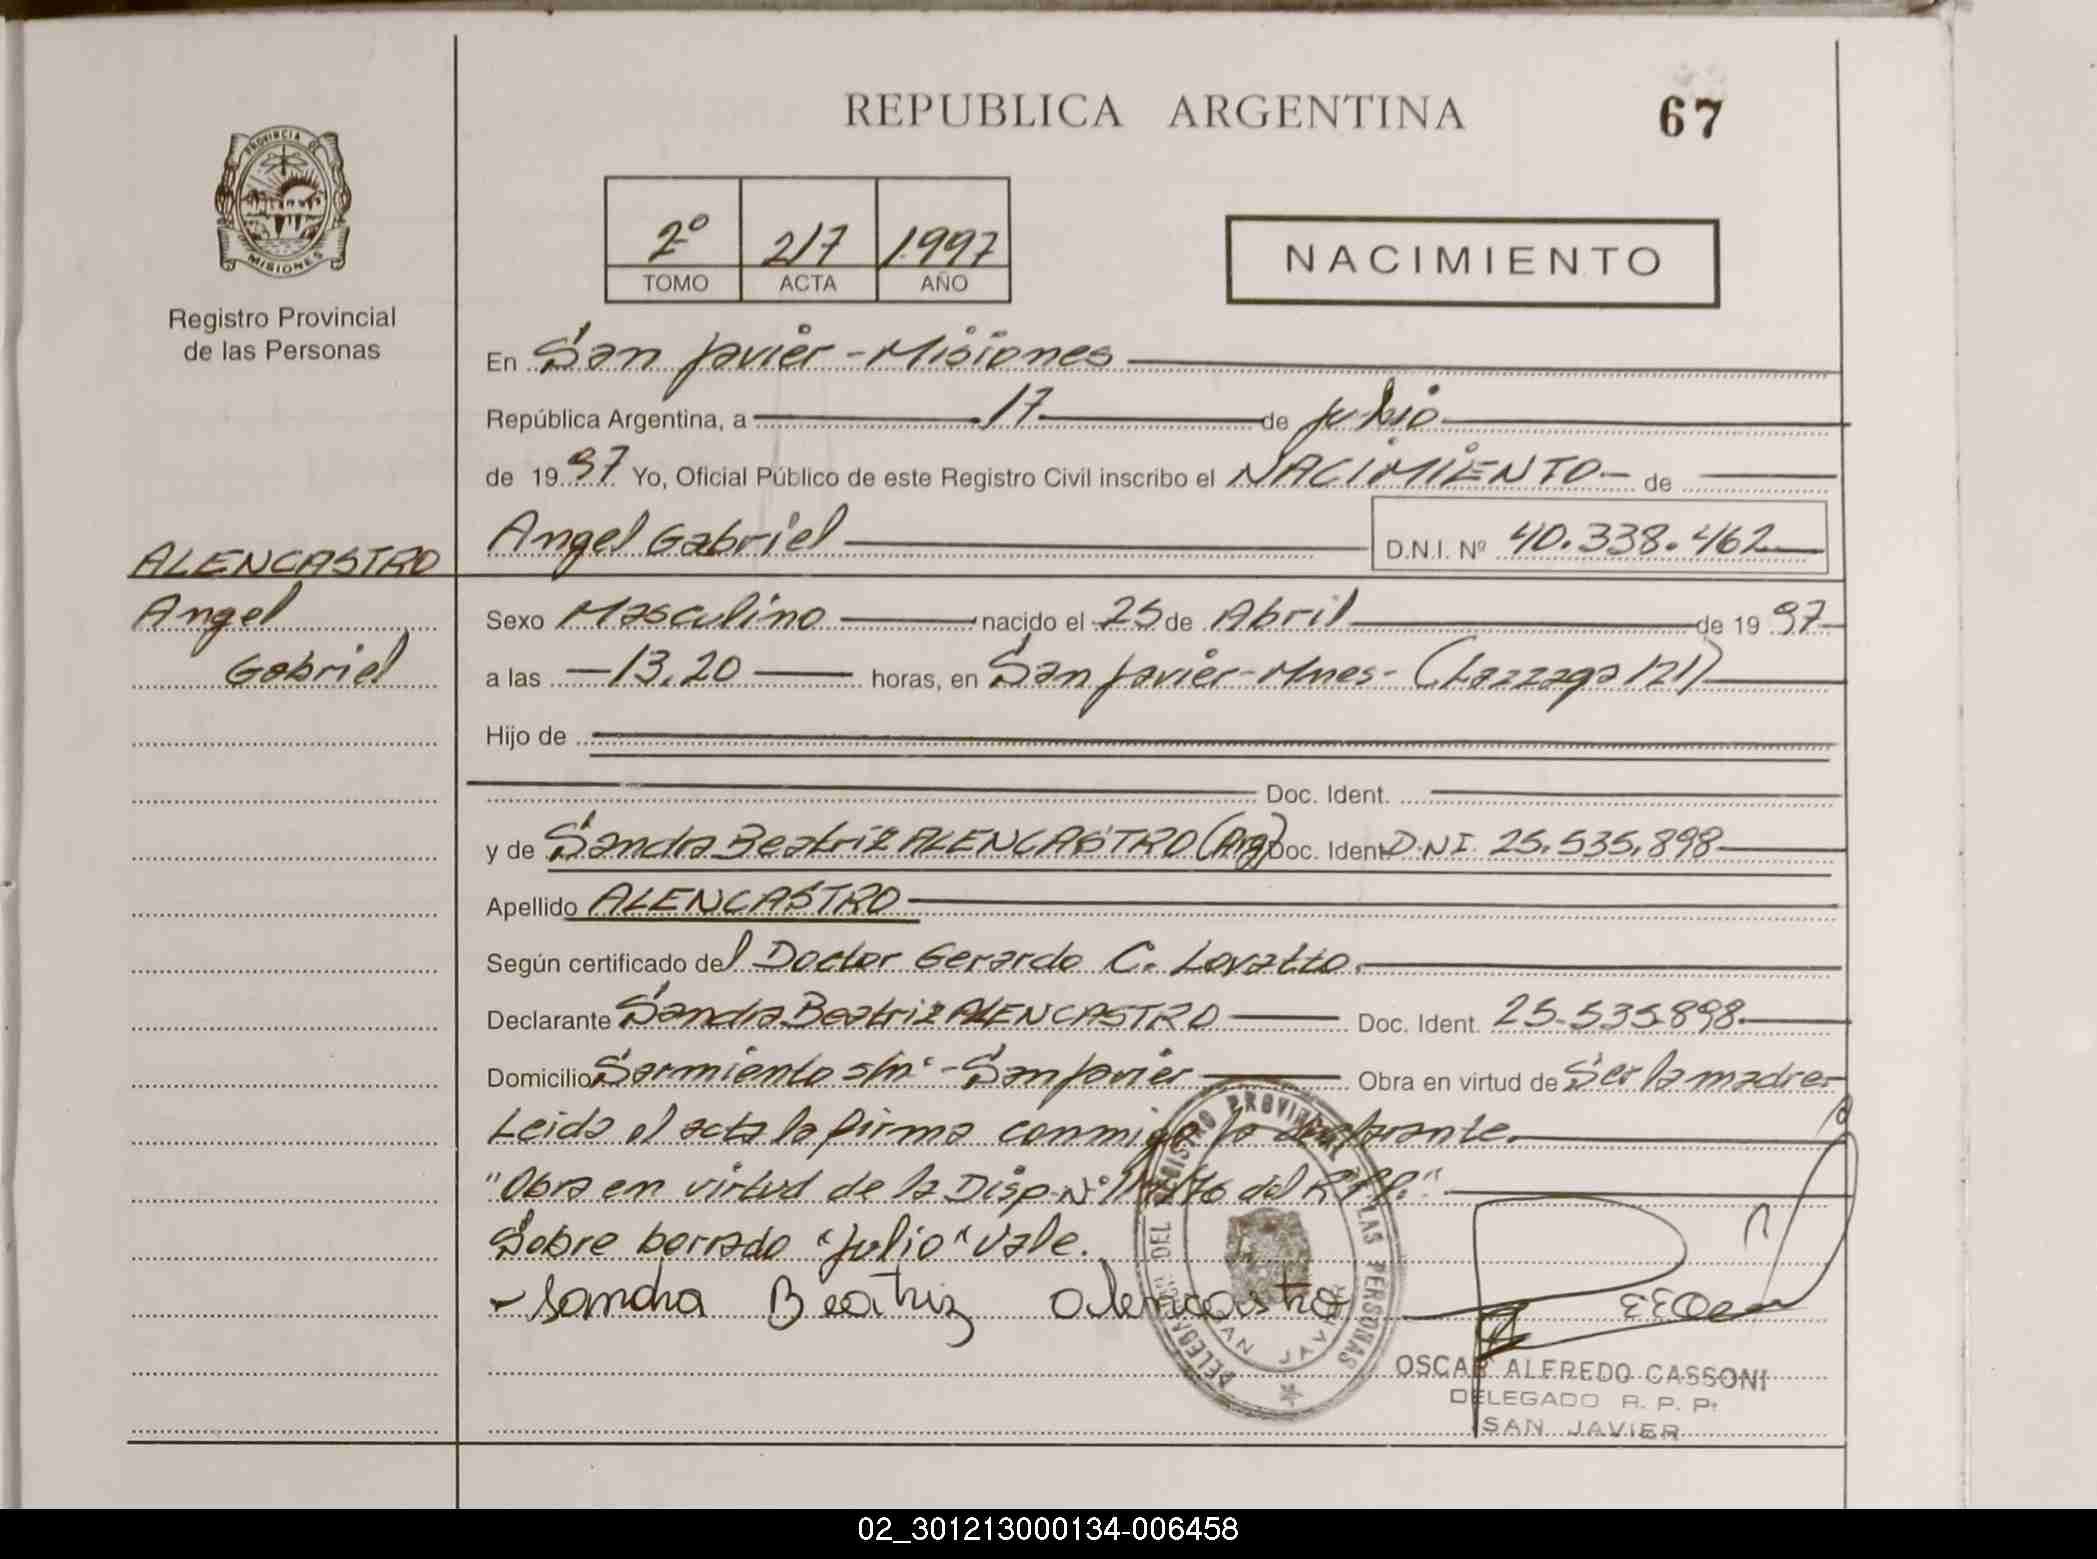 REPUBLICA ARGENTINA
67
PROVINCIA DE
MISIONES
Registro Provincial
de las Personas
2º 217 1997
TOMO ACTA AÑO
NACIMIENTO
En San Javier - Misiones
República Argentina, a 17 de julio
de 1997 Yo, Oficial Público de este Registro Civil inscribo el NACIMIENTO de
Angel Gabriel D.N.I. Nº 40.338.462
ALENCASTRO
Angel
Gabriel
Sexo Masculino nacido el 25 de Abril de 1997
a las 13,20 horas, en San Javier - Mnes - ( 121)
Hijo de
Doc. Ident.
y de Sandra Beatriz ALENCASTRO (Arg) Doc. Ident. D.N.I. 25.535.898
Apellido ALENCASTRO
Según certificado del Doctor Gerardo C. Lovatto.
Declarante Sandra Beatriz ALENCASTRO Doc. Ident. 25.535.898
Domicilio Sarmiento s/nº - San Javier Obra en virtud de Ser la madre.
Leida el acta la firma conmigo la declarante.
"Obra en virtud de la Disp. Nº del R.P.P."
Sobre borrado "julio" vale.
- Sandra Beatriz Alencastro
DELEGACION DEL REGISTRO PROVINCIAL DE LAS PERSONAS
SAN JAVIER
OSCAR ALFREDO CASSONI
DELEGADO R. P. P.
SAN JAVIER
02_301213000134-006458